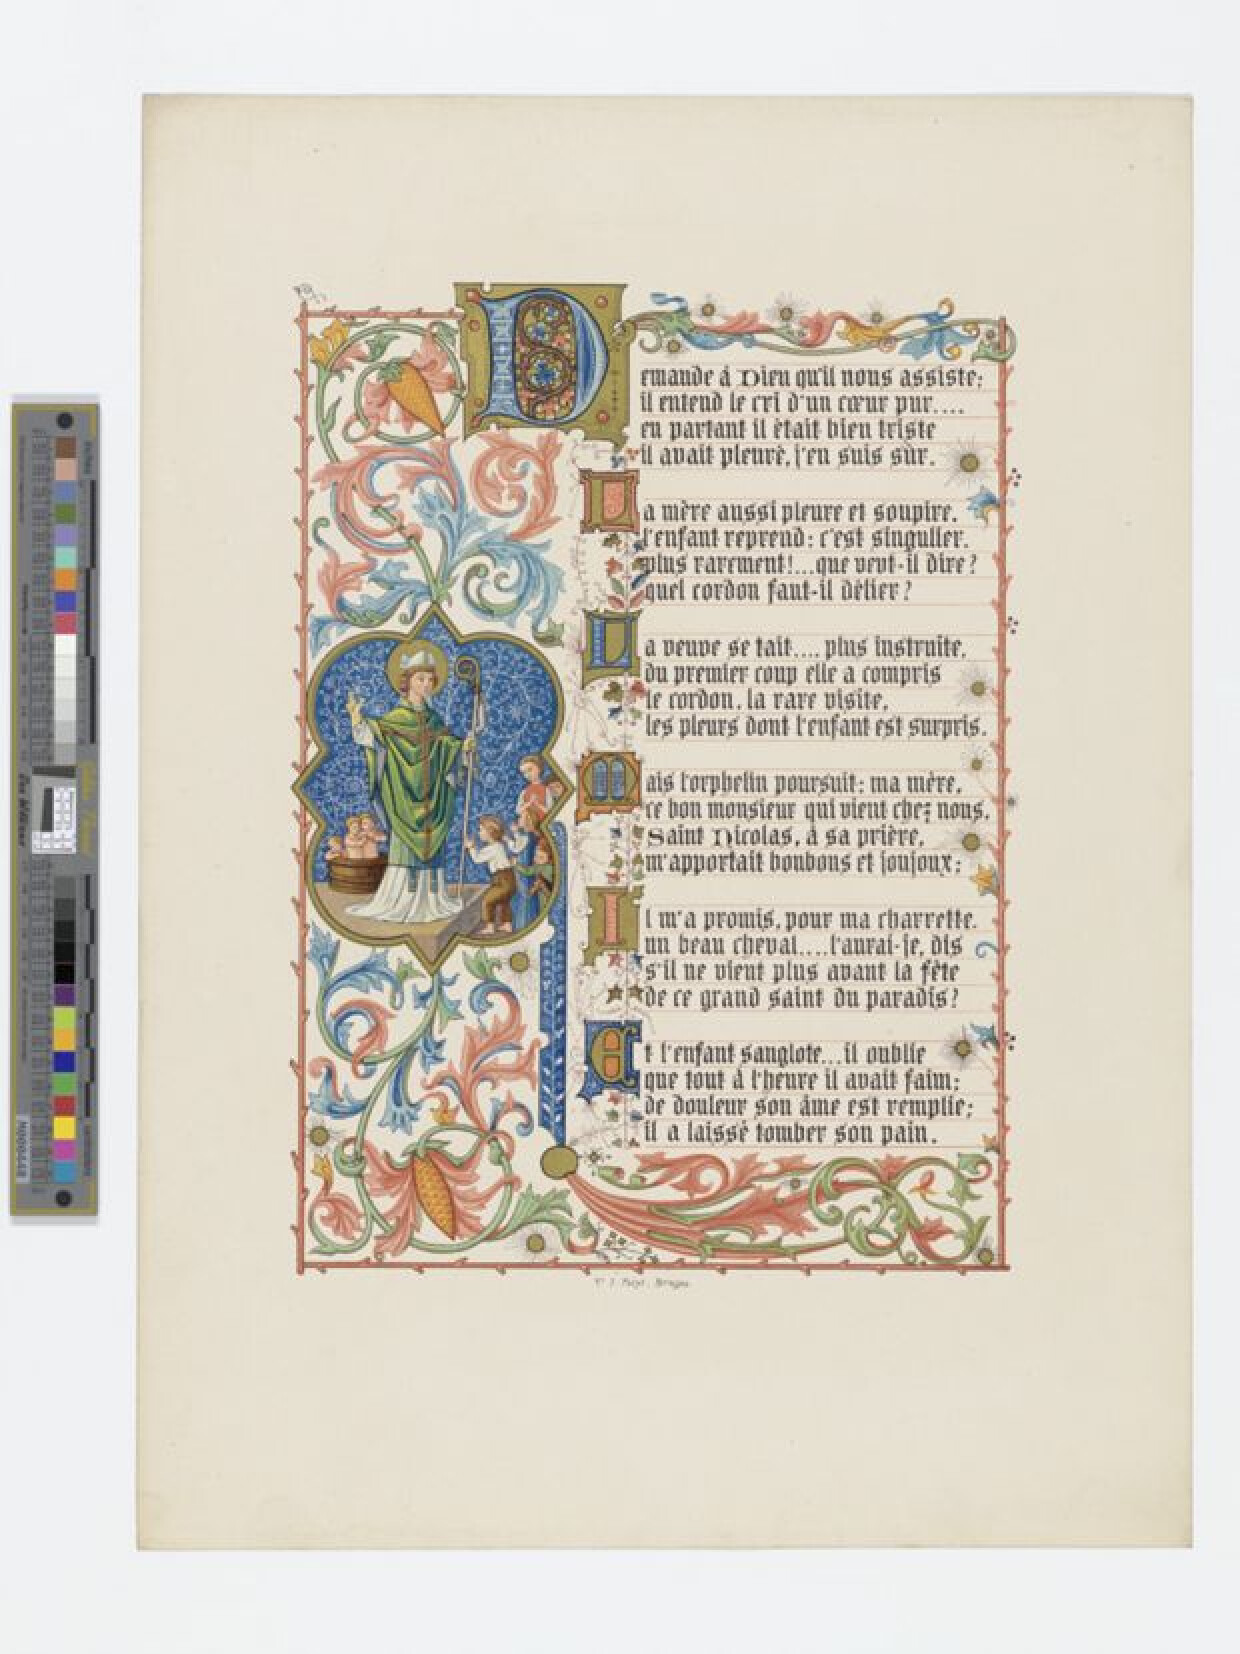 Demande à Dieu qu'il nous assiste;
il entend le cri d'un cœur pur....
en partant il était bien triste
il avait pleuré, j'en suis sûr.
La mère aussi pleure et soupire.
l'enfant reprend: c'est singulier.
plus rarement!...que veut-il dire?
quel cordon faut-il délier?
La veuve se tait.... plus instruite,
du premier coup elle a compris
le cordon, la rare visite,
les pleurs dont l'enfant est surpris.
Mais l'orphelin poursuit: ma mère,
ce bon monsieur qui vient chez nous,
Saint Nicolas, à sa prière,
m'apportait bonbons et joujoux;
Il m'a promis, pour ma charrette.
un beau cheval....l'aurai-je, dis
s'il ne vient plus avant la fête
de ce grand saint du paradis?
Et l'enfant sanglote...il oublie
que tout à l'heure il avait faim;
de douleur son âme est remplie;
il a laissé tomber son pain.